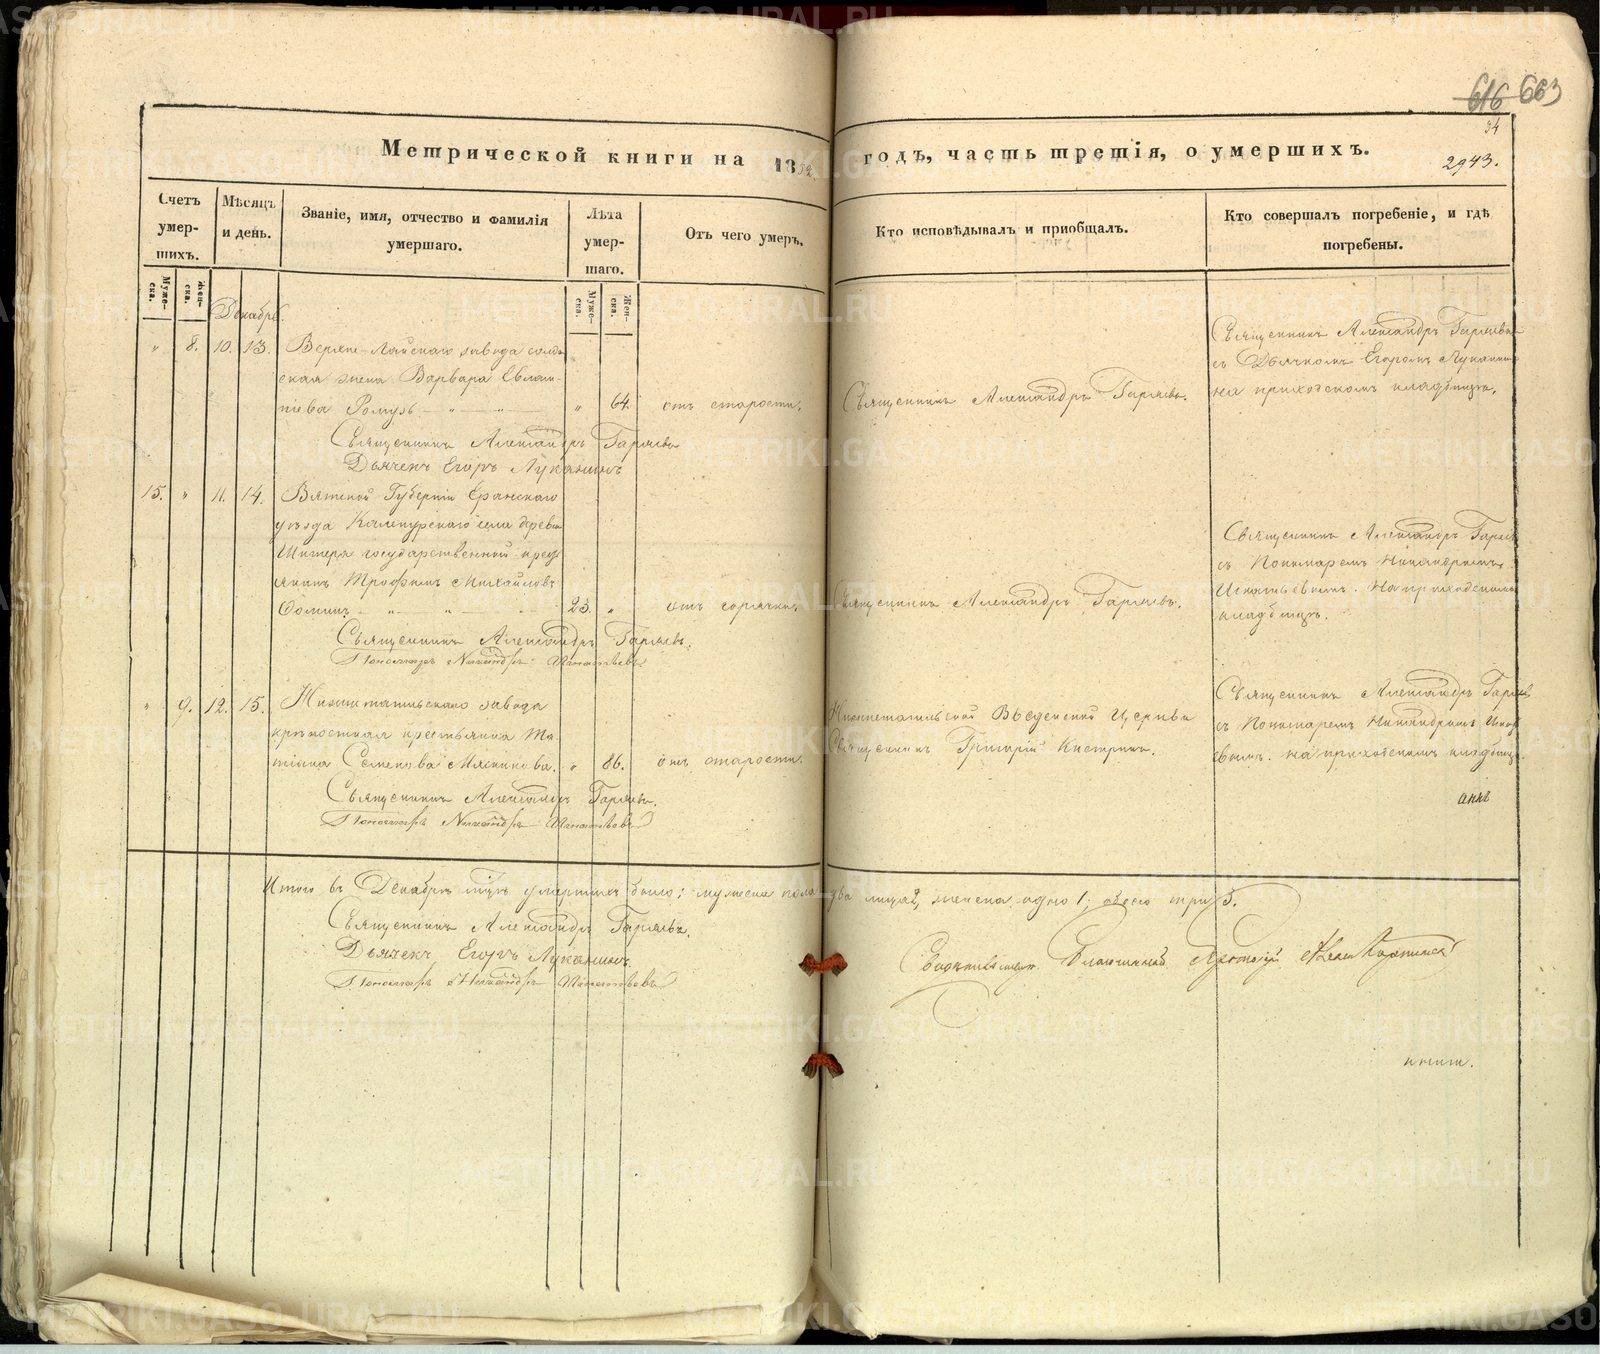 616 663
34
2943.
Метрической книги на 1852. годъ, часть третія, о умершихъ.
Счетъ умер-шихъ.
Мѣсяцъ и день.
Званіе, имя, отчество и фамилія умершаго.
Лѣта умер-шаго.
Отъ чего умеръ.
Кто исповѣдывалъ и приобщалъ.
Кто совершалъ погребеніе, и гдѣ погребены.
Муже-ска.
Жен-ска.
Муже-ска.
Жен-ска.
Декабрь.
" 8. 10. 13.
Верхне-Лайскаго завода солд
ская жена Варвара Евлам-
піева " 64. отъ старости.
Священникъ Александръ Гаряевъ.
Священникъ Александръ Гаряевъ
съ Дьячкомъ Егоромъ Луканин
на приходскомъ кладбищѣ.
Священникъ Александръ Гаряевъ
Дьячекъ Егоръ Луканинъ
15. " 11. 14.
Вятской Губерніи Яранскаго
уѣзда села дерев
государственной крест
янинъ Трофимъ Михайловъ
Фоминъ 23. " отъ горячки.
Священникъ Александръ Гаряевъ.
Священникъ Александръ Гаряев
съ Пономаремъ Никандромъ
Игнатьевымъ. На приходскомъ
кладбищѣ.
Священникъ Александръ Гаряевъ.
Пономарь Никандръ Игнатьевъ
" 9. 12. 15.
Нижнетагильскаго завода
крѣпостная крестьянка Та
тіана Семенова Мясникова. " 86. отъ старости.
Нижнетагильской Введенской Церкви
Священникъ Григорій
Священникъ Александръ Гаряев
съ Пономаремъ Никандромъ Игнать
евымъ. на приходскомъ кладбищѣ.
Священникъ Александръ Гаряевъ.
Пономарь Никандръ Игнатьевъ
Итого въ Декабрѣ мѣсяцѣ умершихъ было: мужеска пола два лица 2, женска одно 1; обоего три 3.
Священникъ Александръ Гаряевъ.
Дьячекъ Егоръ Луканинъ.
Пономарь Никандръ Игнатьевъ
Свидѣтельствовалъ Благочинный
книги.
METRIKI.GASO-URAL.RU